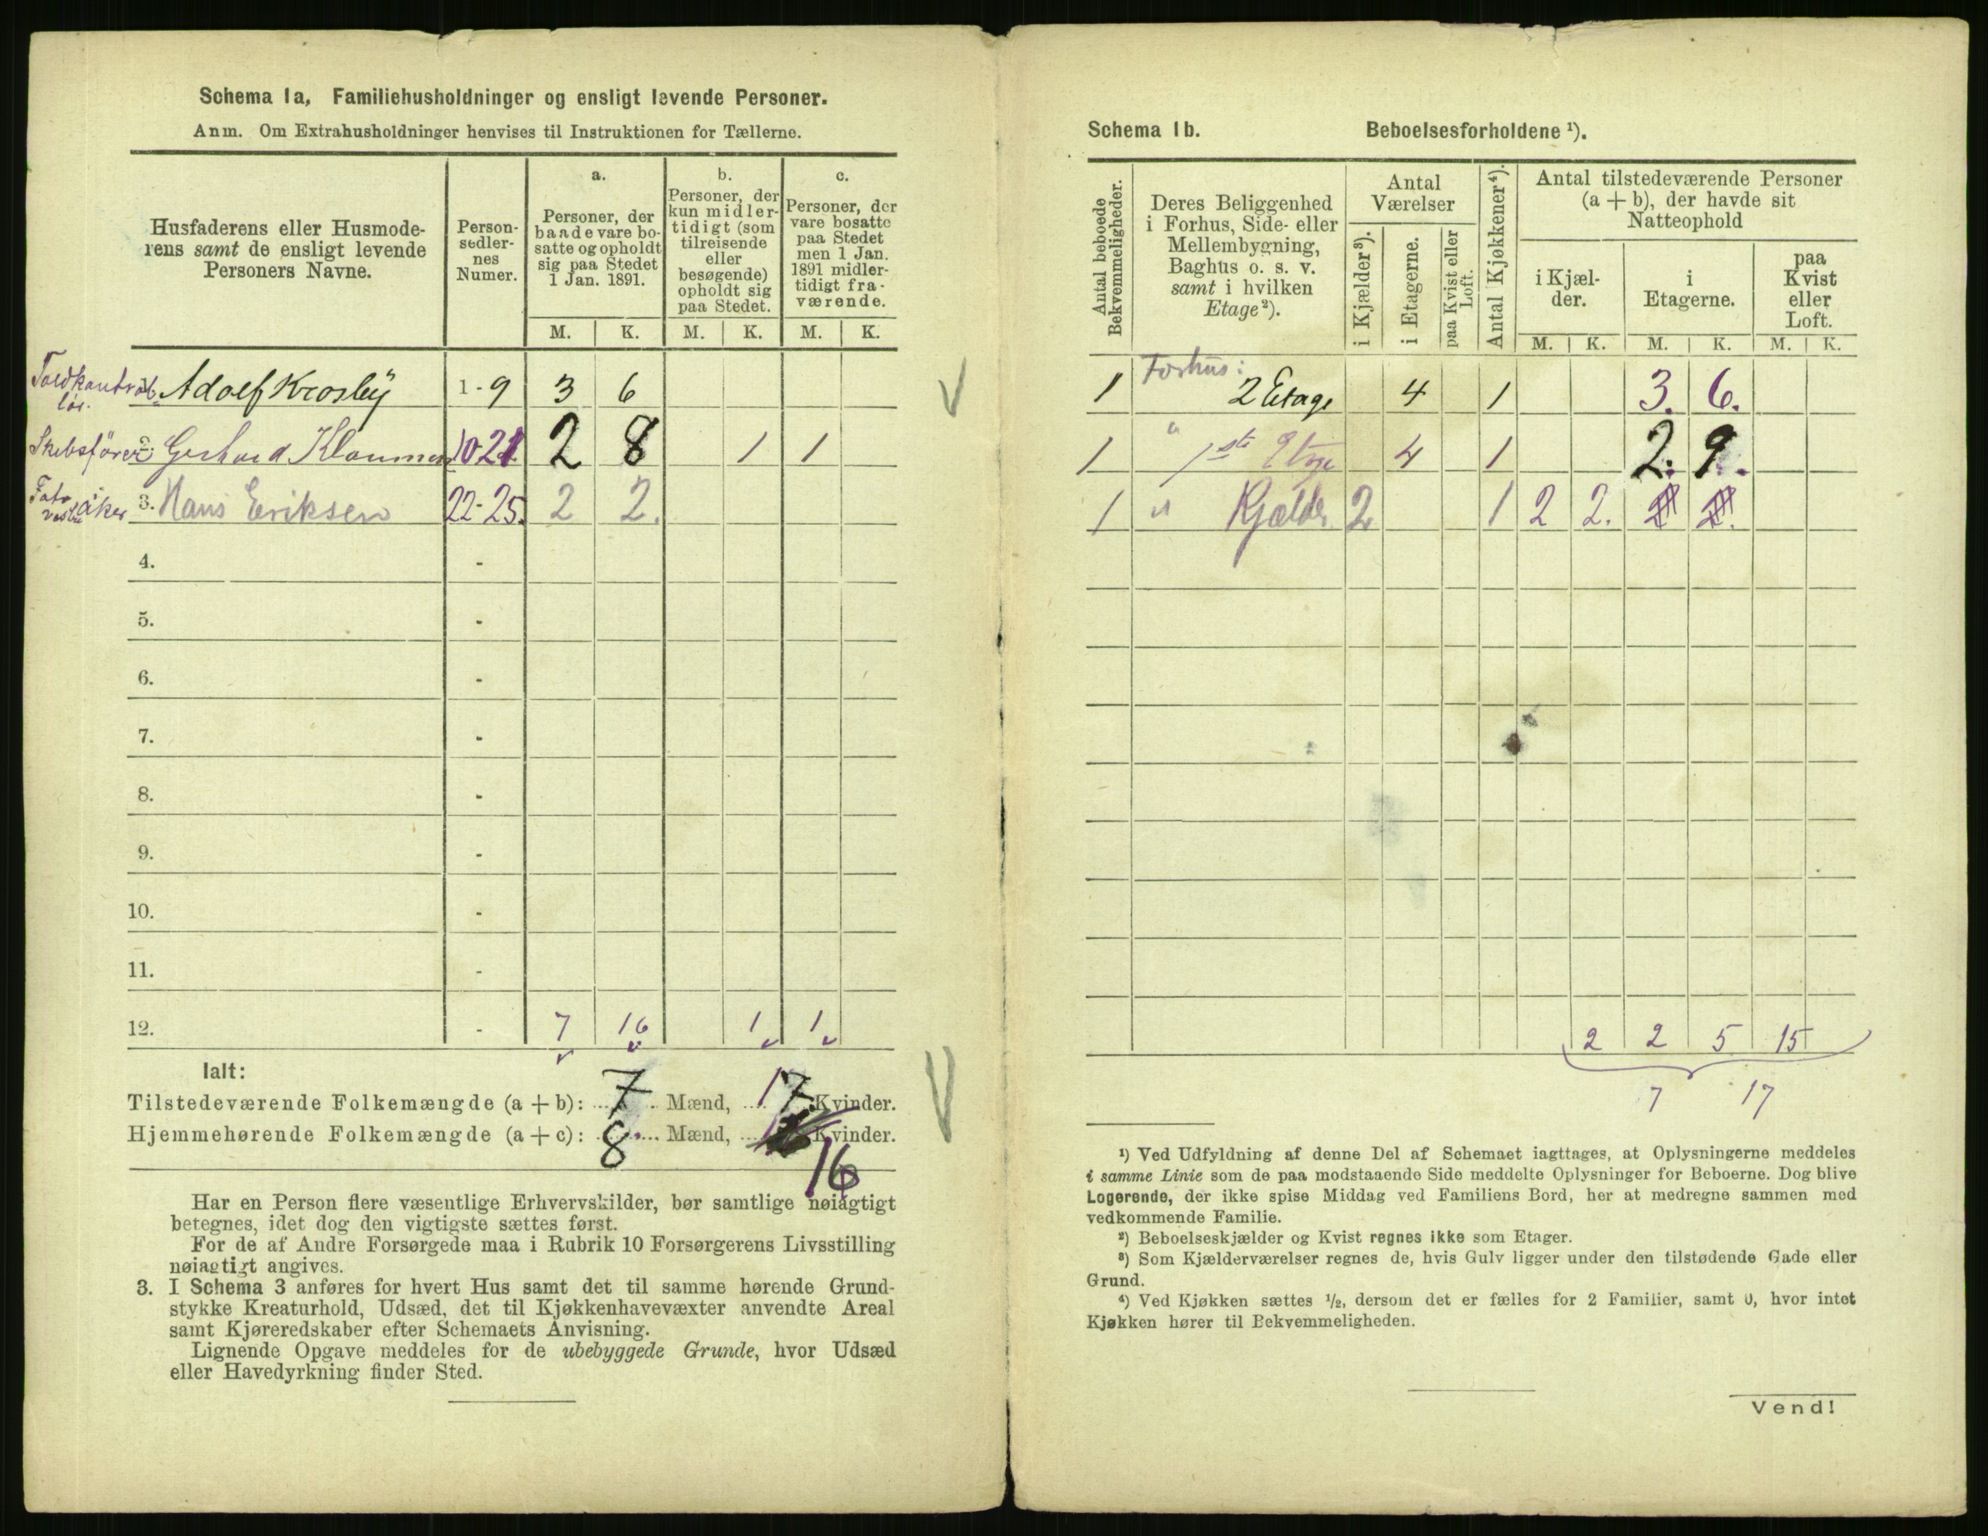 Schema 1a, Familiehusholdninger og ensligt levende Personer.
Anm. Om Extrahusholdninger henvises til Instruktionen for Tællerne.
Husfaderens eller Husmode-
rens samt de ensligt levende
Personers Navne.
Person-
sedler-
nes
Numer.
a.
Personer, der
baade vare bo-
satte og opholdt
sig paa Stedet
1 Jan. 1891.
b.
Personer, der
kun midler-
tidigt (som
tilreisende
eller
besøgende)
opholdt sig
paa Stedet.
c.
Personer, der
vare bosatte
paa Stedet
men 1 Jan.
1891 midler-
tidigt fra-
værende.
M. K. M. K. M. K.
Toldkontrol-
lør. Adolf Krosby 1-9 3 6
Skibsfører 2. Gerhard 10-21 2 8 1 1
3. Hans Eriksen 22-25. 2 2.
4. -
5. -
6. -
7. -
8. -
9. -
10. -
11. -
12. - 7 16 1 1
Ialt:
Tilstedeværende Folkemængde (a + b): 7 Mænd, 17 Kvinder.
Hjemmehørende Folkemængde (a + c): 8 Mænd, Kvinder.
16
Har en Person flere væsentlige Erhvervskilder, bør samtlige nøiagtigt
betegnes, idet dog den vigtigste sættes først.
For de af Andre Forsørgede maa i Rubrik 10 Forsørgerens Livsstilling
nøiagtigt angives.
3. I Schema 3 anføres for hvert Hus samt det til samme hørende Grund-
stykke Kreaturhold, Udsæd, det til Kjøkkenhavevæxter anvendte Areal
samt Kjøreredskaber efter Schemaets Anvisning.
Lignende Opgave meddeles for de ubebyggede Grunde, hvor Udsæd
eller Havedyrkning finder Sted.
Schema 1b. Beboelsesforholdene ¹).
Antal beboede
Bekvemmeligheder.
Deres Beliggenhed
i Forhus, Side- eller
Mellembygning,
Baghus o. s. v.
samt i hvilken
Etage²).
Antal
Værelser
i Kjælder³).
i Etagerne.
paa Kvist eller
Loft.
Antal Kjøkkener⁴).
Antal tilstedeværende Personer
(a + b), der havde sit
Natteophold
i Kjæl-
der.
i
Etagerne.
paa
Kvist
eller
Loft.
M. K. M. K. M. K.
Forhus:
1 2 Etage 4 1 3. 6.
1 " 1ste Etage 4 1 2. 9.
1 " Kjælder 2 1 2 2. 2 2.
2 2 5 15
7 17
¹) Ved Udfyldning af denne Del af Schemaet iagttages, at Oplysningerne meddeles
i samme Linie som de paa modstaaende Side meddelte Oplysninger for Beboerne. Dog blive
Logerende, der ikke spise Middag ved Familiens Bord, her at medregne sammen med
vedkommende Familie.
²) Beboelseskjælder og Kvist regnes ikke som Etager.
³) Som Kjælderværelser regnes de, hvis Gulv ligger under den tilstødende Gade eller
Grund.
⁴) Ved Kjøkken sættes ½, dersom det er fælles for 2 Familier, samt 0, hvor intet
Kjøkken hører til Bekvemmeligheden.
Vend!